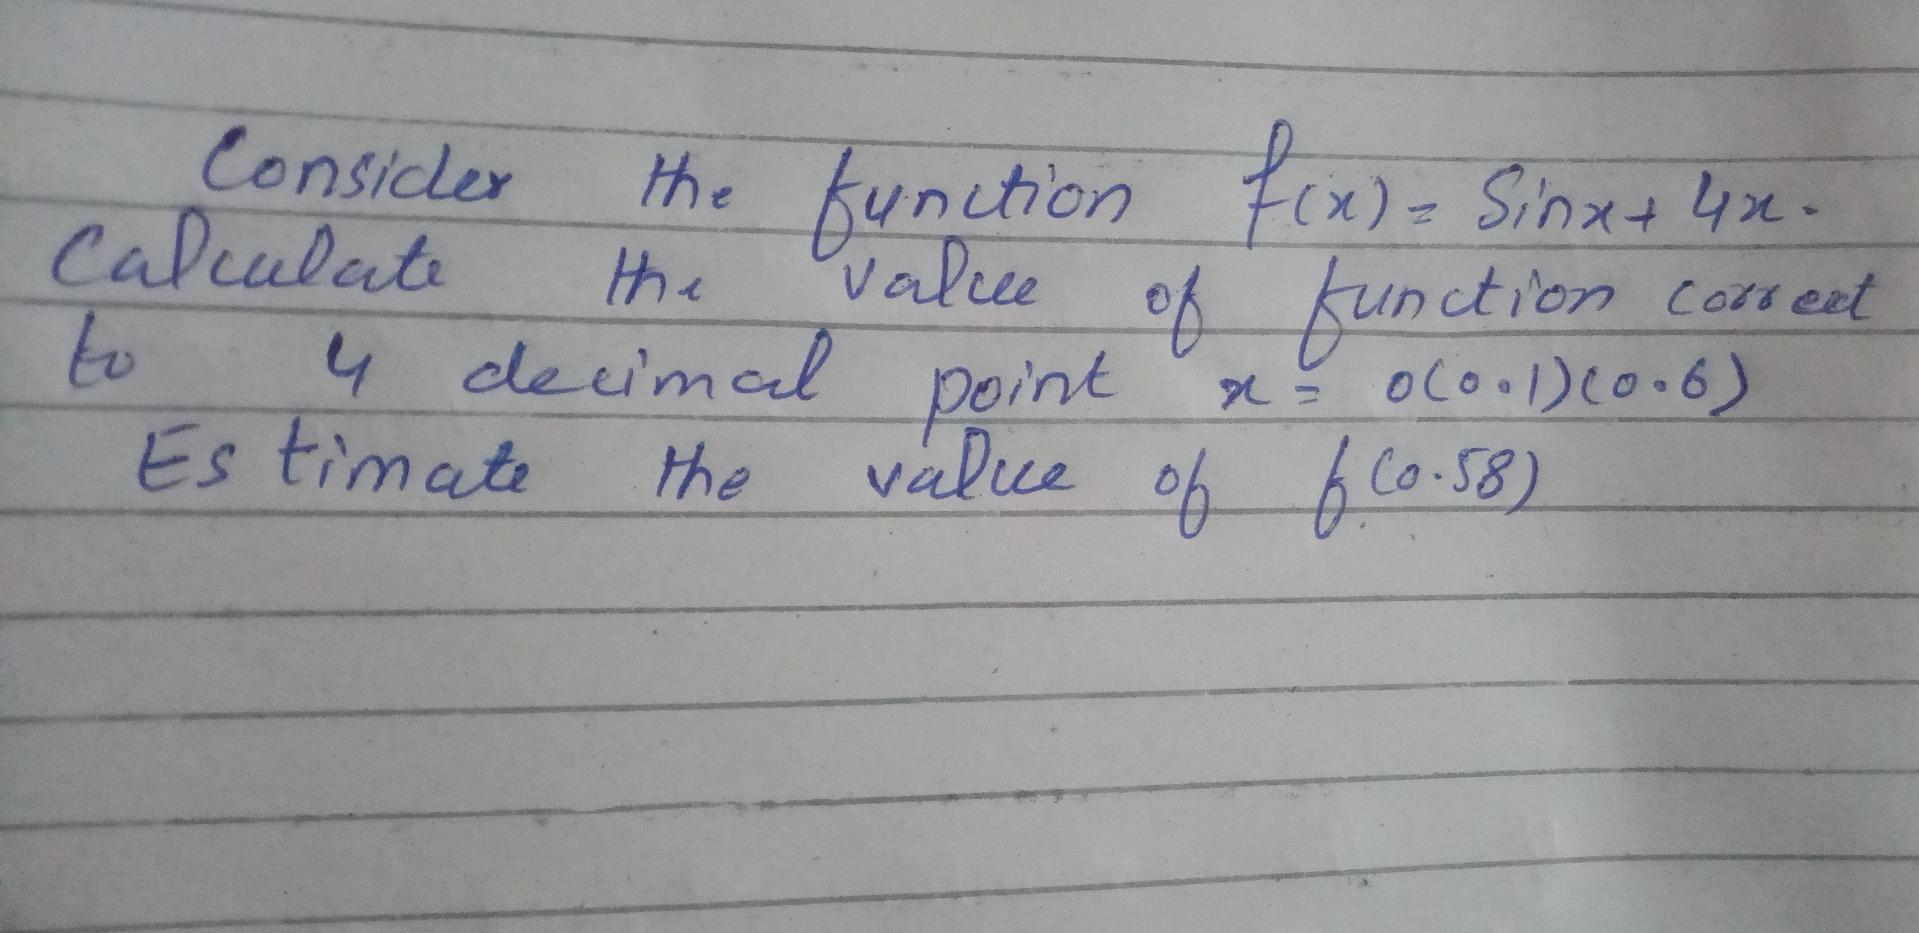 Consider the function f(x) = Sinx + 4x.
Calculate the value of function correct
to 4 decimal point x = 0(0.1)(0.6)
Estimate the value of f(0.58)